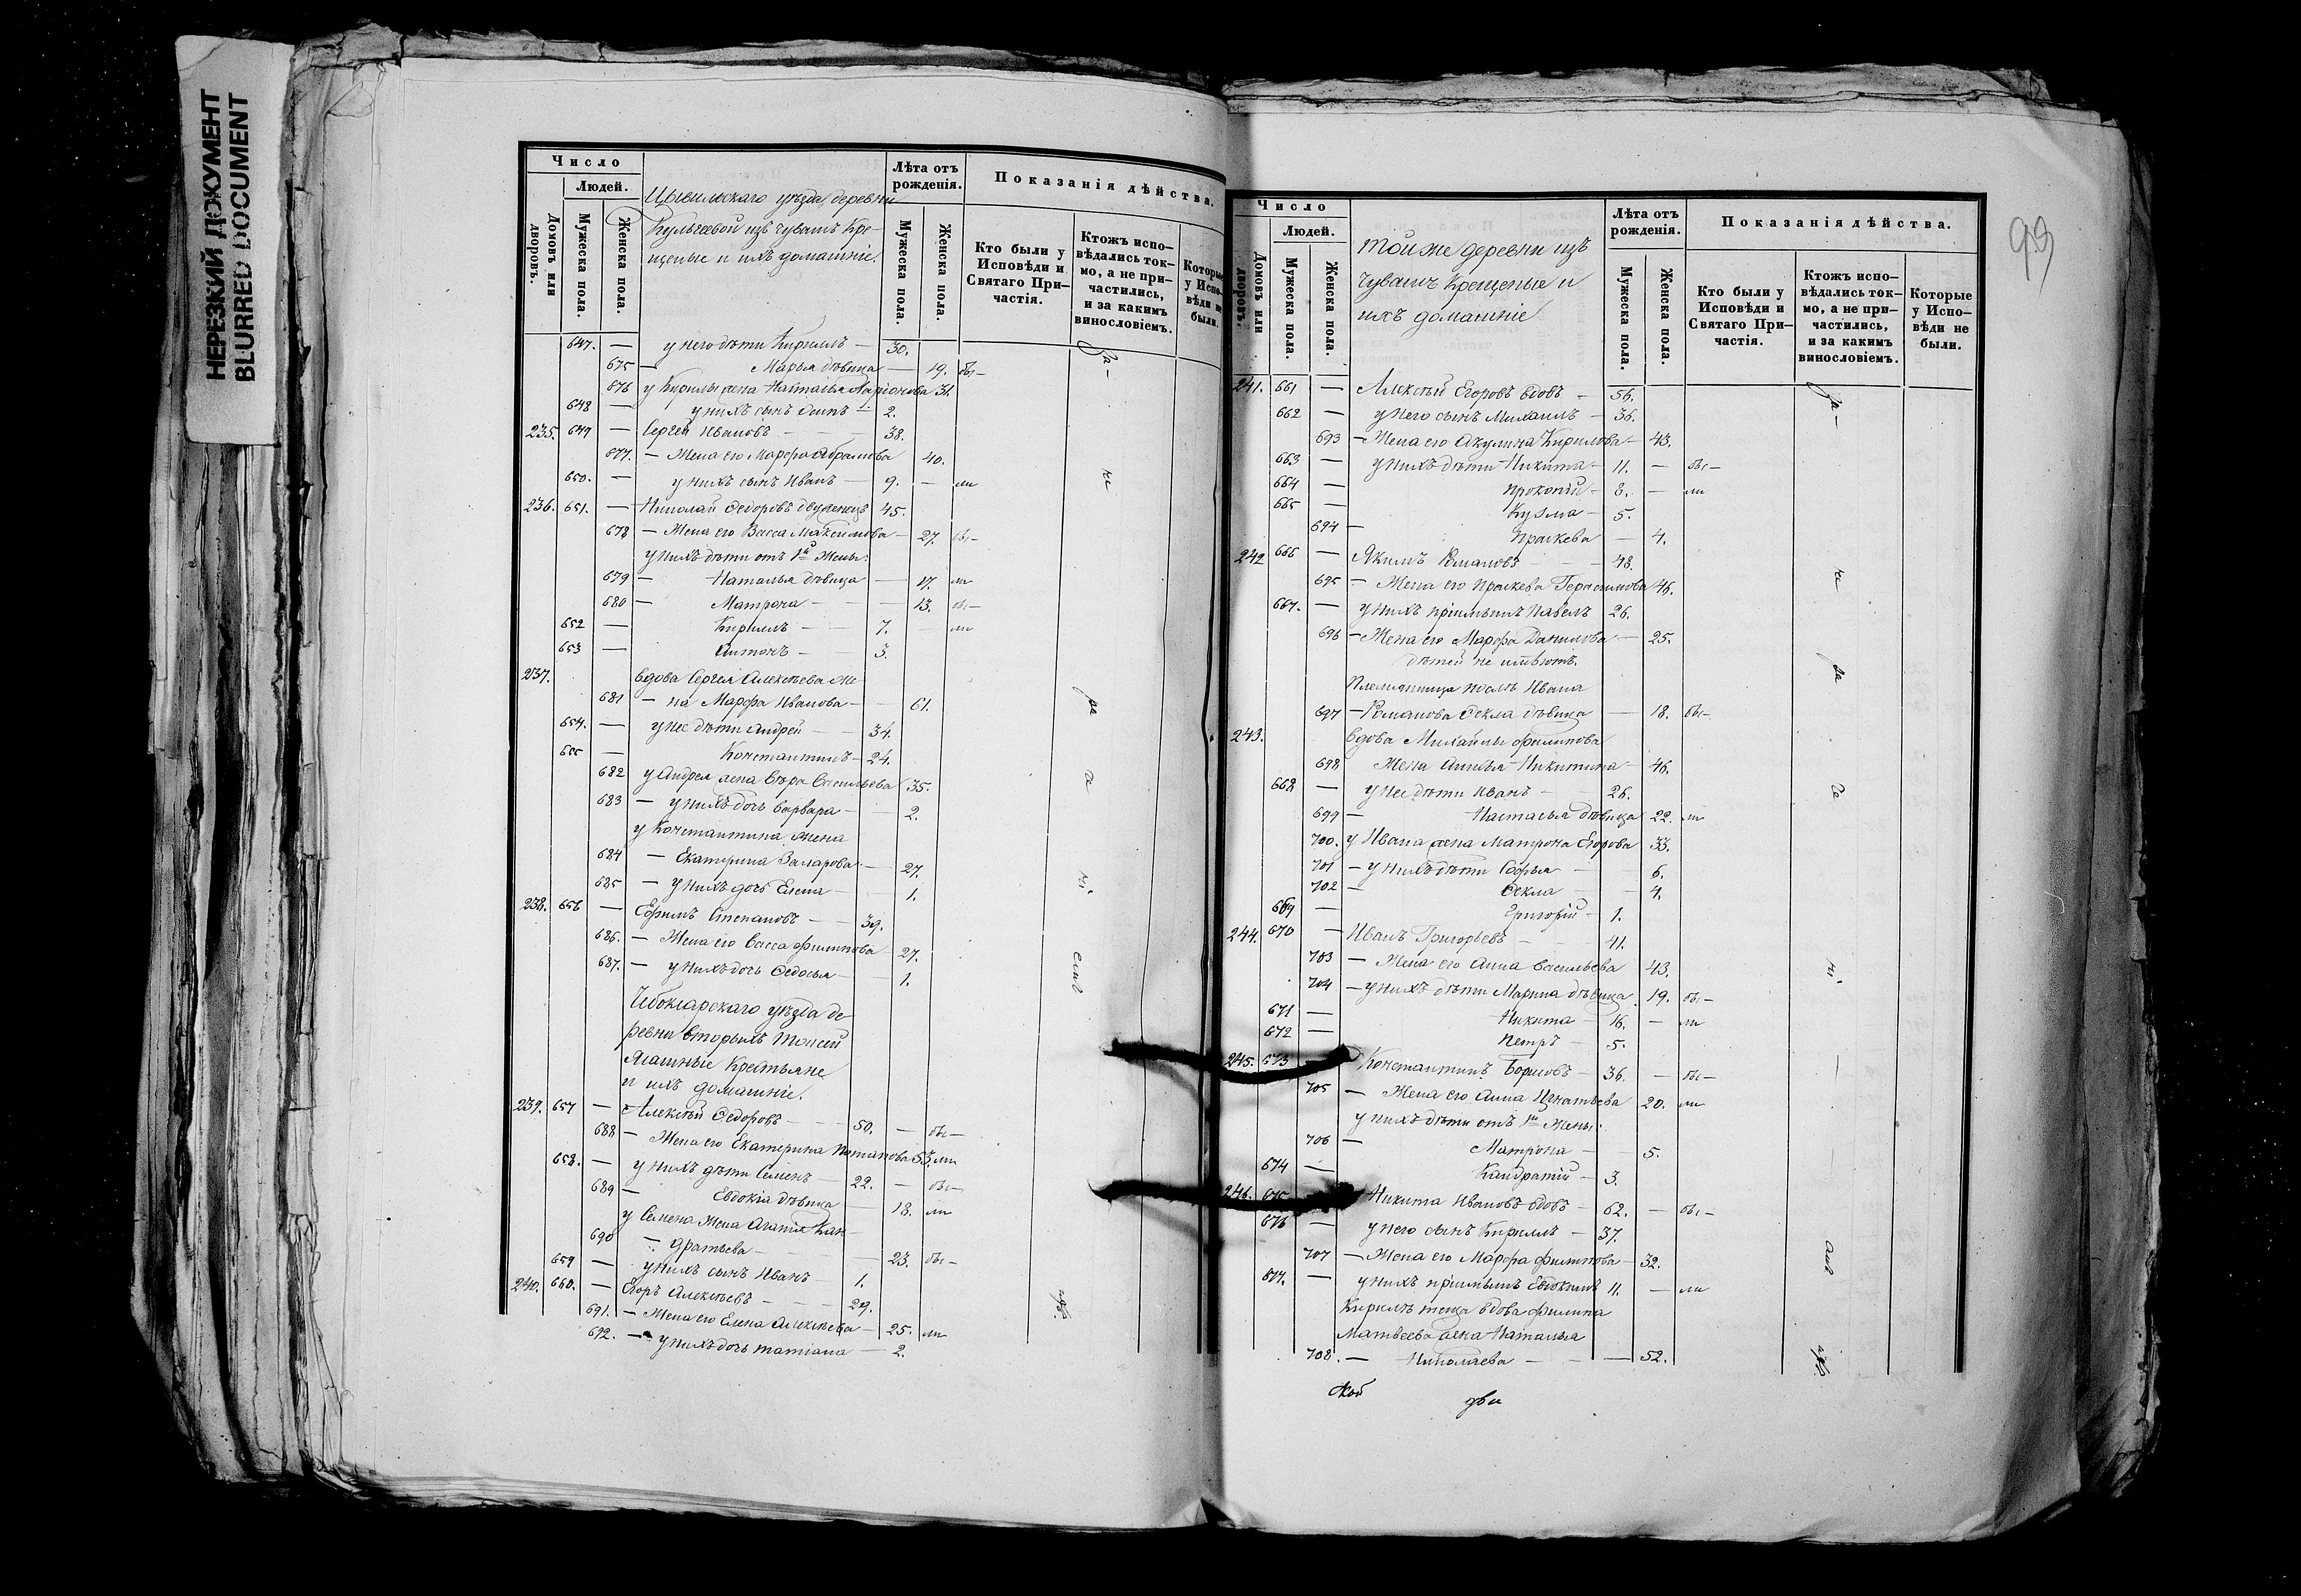 НЕРЕЗКИЙ ДОКУМЕНТ
BLURRED DOCUMENT
Число
Людей.
Домовъ или дворовъ.
Мужеска пола.
Женска пола.
Цывильскаго уѣзда, деревни
Кульгеевой изъ чувашъ Кре-
щеные и ихъ домашніе.
Лѣта отъ рожденія.
Мужеска пола.
Женска пола.
Показанія дѣйства.
Кто были у Исповѣди и Святаго При-частія.
Ктожъ испо-вѣдались ток-мо, а не при-частились, и за какимъ винословіемъ.
Которые у Испо-вѣди не были.
647. — у него дѣти Кириллъ — 30.
675 — Марья дѣвица — 19. бы-
676 у Кирилы жена Настасья Ларіонова 31.
648 — у нихъ сынъ — 2.
235. 649 — Сергей Ивановъ — 38.
677. — Жена его Марфа Абрамова 40.
650. — у нихъ сынъ Иванъ — 9. — ли
236. 651. — Николай Ѳедоровъ 45.
678 — Жена его Васса Максимова — 27. бы-
у нихъ дѣти отъ 1й Жены:
679 — Наталья дѣвица — 17. ли
680 — Матрона — 13. бы-
652 — Кириллъ — 7. — ли
653 — Антонъ — 3.
237. вдова Сергея Алексѣева же
681 — на Марфа Иванова — 61.
654. — у нее дѣти Андрей — 34.
655 — Константинъ — 24.
682 у Андрея жена Вѣра Васильева 35.
683 — у нихъ дочь Варвара — 2.
у Константина жена
684 — Екатерина Захарова — 27.
685 — у нихъ дочь Елена — 1.
238. 656 — Ефимъ Степановъ — 39.
686. — Жена его Васса Филипова 27.
687. — у нихъ дочь Ѳедосья — 1.
Чебоксарскаго уѣзда де-
ревни Вторыхъ Тоисей
Ясашные Крестьяне
и ихъ домашніе.
239. 657 — Алексѣй Ѳедоровъ — 50. — бы-
688 — Жена его Екатерина Потапова 53. ли
658. — у нихъ дѣти Семенъ — 22. — бы-
689 — Евдокіа дѣвица — 18. ли
у Семена Жена Агапія Кан-
690 — дратьева — 23. бы-
659 — у нихъ сынъ Иванъ — 1.
240. 660. — Егоръ Алексѣевъ — 29.
691. — Жена его Елена Алексѣева — 25. ли
692. — у нихъ дочь Татіана — 2.
93
Число
Людей.
Домовъ или дворовъ.
Мужеска пола.
Женска пола.
Той же деревни изъ
Чувашъ Крещеные и
ихъ домашніе
Лѣта отъ рожденія.
Мужеска пола.
Женска пола.
Показанія дѣйства.
Кто были у Исповѣди и Святаго При-частія.
Ктожъ испо-вѣдались ток-мо, а не при-частились, и за какимъ винословіемъ.
Которые у Испо-вѣди не были.
241. 661 — Алексѣй Егоровъ вдовъ — 56.
662 — у него сынъ Михаилъ — 36.
693 — Жена его Акулина Кирилова — 43.
663 — у нихъ дѣти Никита — 11. — бы-
664 — Прокопій — 8. — ли
665 — Кузма — 5.
694 — Праскева — 4.
242 666 — Якимъ Романовъ — 48.
695 — Жена его Праскева Герасимова 46.
667. — у нихъ пріимышъ Павелъ 26.
696 — Жена его Марфа Данилова — 25.
дѣтей не имѣютъ.
Племянница послѣ Ивана
697 — Романова Ѳекла дѣвица — 18. бы-
243. вдова Михайлы Филипова
698 Жена Анисья Никитина — 46.
668 — у нее дѣти Иванъ — 26.
699 — Настасья дѣвица 22. ли
700. у Ивана жена Матрона Егорова 33.
701 — у нихъ дѣти Софья — 6.
702 — Ѳекла — 4.
669 — Григорій — 1.
244. 670 — Иванъ Григорьевъ — 41.
703 — Жена его Анна Васильева 43.
704 — у нихъ дѣти Марина дѣвица 19. бы-
671 — Никита — 16. — ли
672 — Петръ — 5.
245. 673 Константинъ Борисовъ — 36. — бы-
705 — Жена его Анна Игнатьева 20. ли
у нихъ дѣти отъ 1й Жены:
706 — Матрона — 5.
674 — Кандратій — 3.
246. 675 Никита Ивановъ вдовъ — 62. — бы-
676 — у него сынъ Кириллъ — 37.
707 — Жена его Марфа Филипова — 32.
677. — у нихъ пріимышъ Евдокимъ 11. — ли
Кирилъ теща вдова Филипа
Матвеева жена Наталья
708. — Николаева — 52.